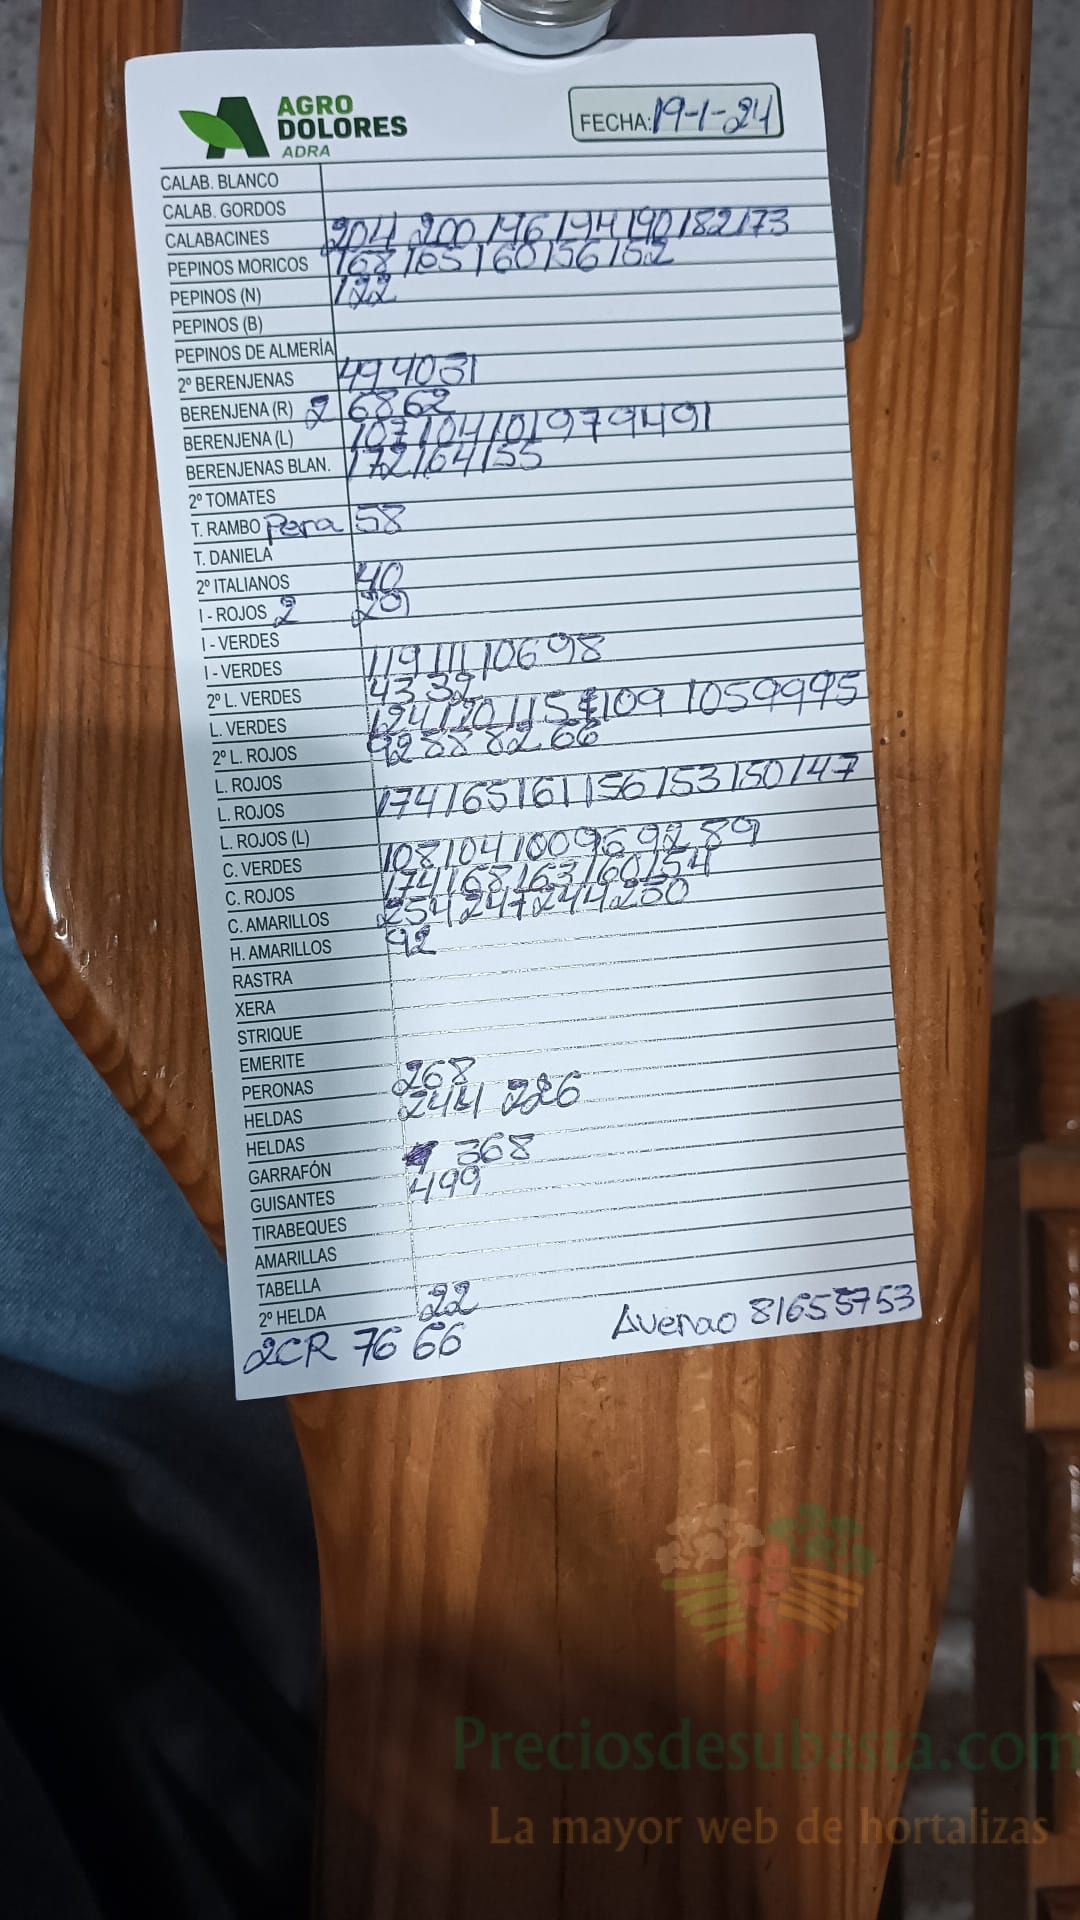 AGRO
DOLORES
ADRA
FECHA: 19-1-24
CALAB. BLANCO
CALAB. GORDOS
CALABACINES 204 200 196 194 190 182 173
PEPINOS MORICOS 168 165 160 156 152
PEPINOS (N) 122
PEPINOS (B)
PEPINOS DE ALMERÍA
2º BERENJENAS 49 40 31
BERENJENA (R) 2 68 62
BERENJENA (L) 107 104 101 97 94 91
BERENJENAS BLAN. 172 164 155
2º TOMATES
T. RAMBO Pera 58
T. DANIELA
2º ITALIANOS 40
I - ROJOS 2 20
I - VERDES
I - VERDES 119 111 106 98
2º L. VERDES 43 32
L. VERDES 124 120 115 109 105 99 95
2º L. ROJOS 92 88 82 66
L. ROJOS
L. ROJOS 174 165 161 156 153 150 147
L. ROJOS (L)
C. VERDES 108 104 100 96 92 89
C. ROJOS 174 168 163 160 154
C. AMARILLOS 254 247 244 230
H. AMARILLOS 92
RASTRA
XERA
STRIQUE
EMERITE
PERONAS 268
HELDAS 244 226
HELDAS
GARRAFÓN 368
GUISANTES 499
TIRABEQUES
AMARILLAS
TABELLA
2º HELDA 22
2CR 76 66
81655753
Preciosdesubasta.com
La mayor web de hortalizas